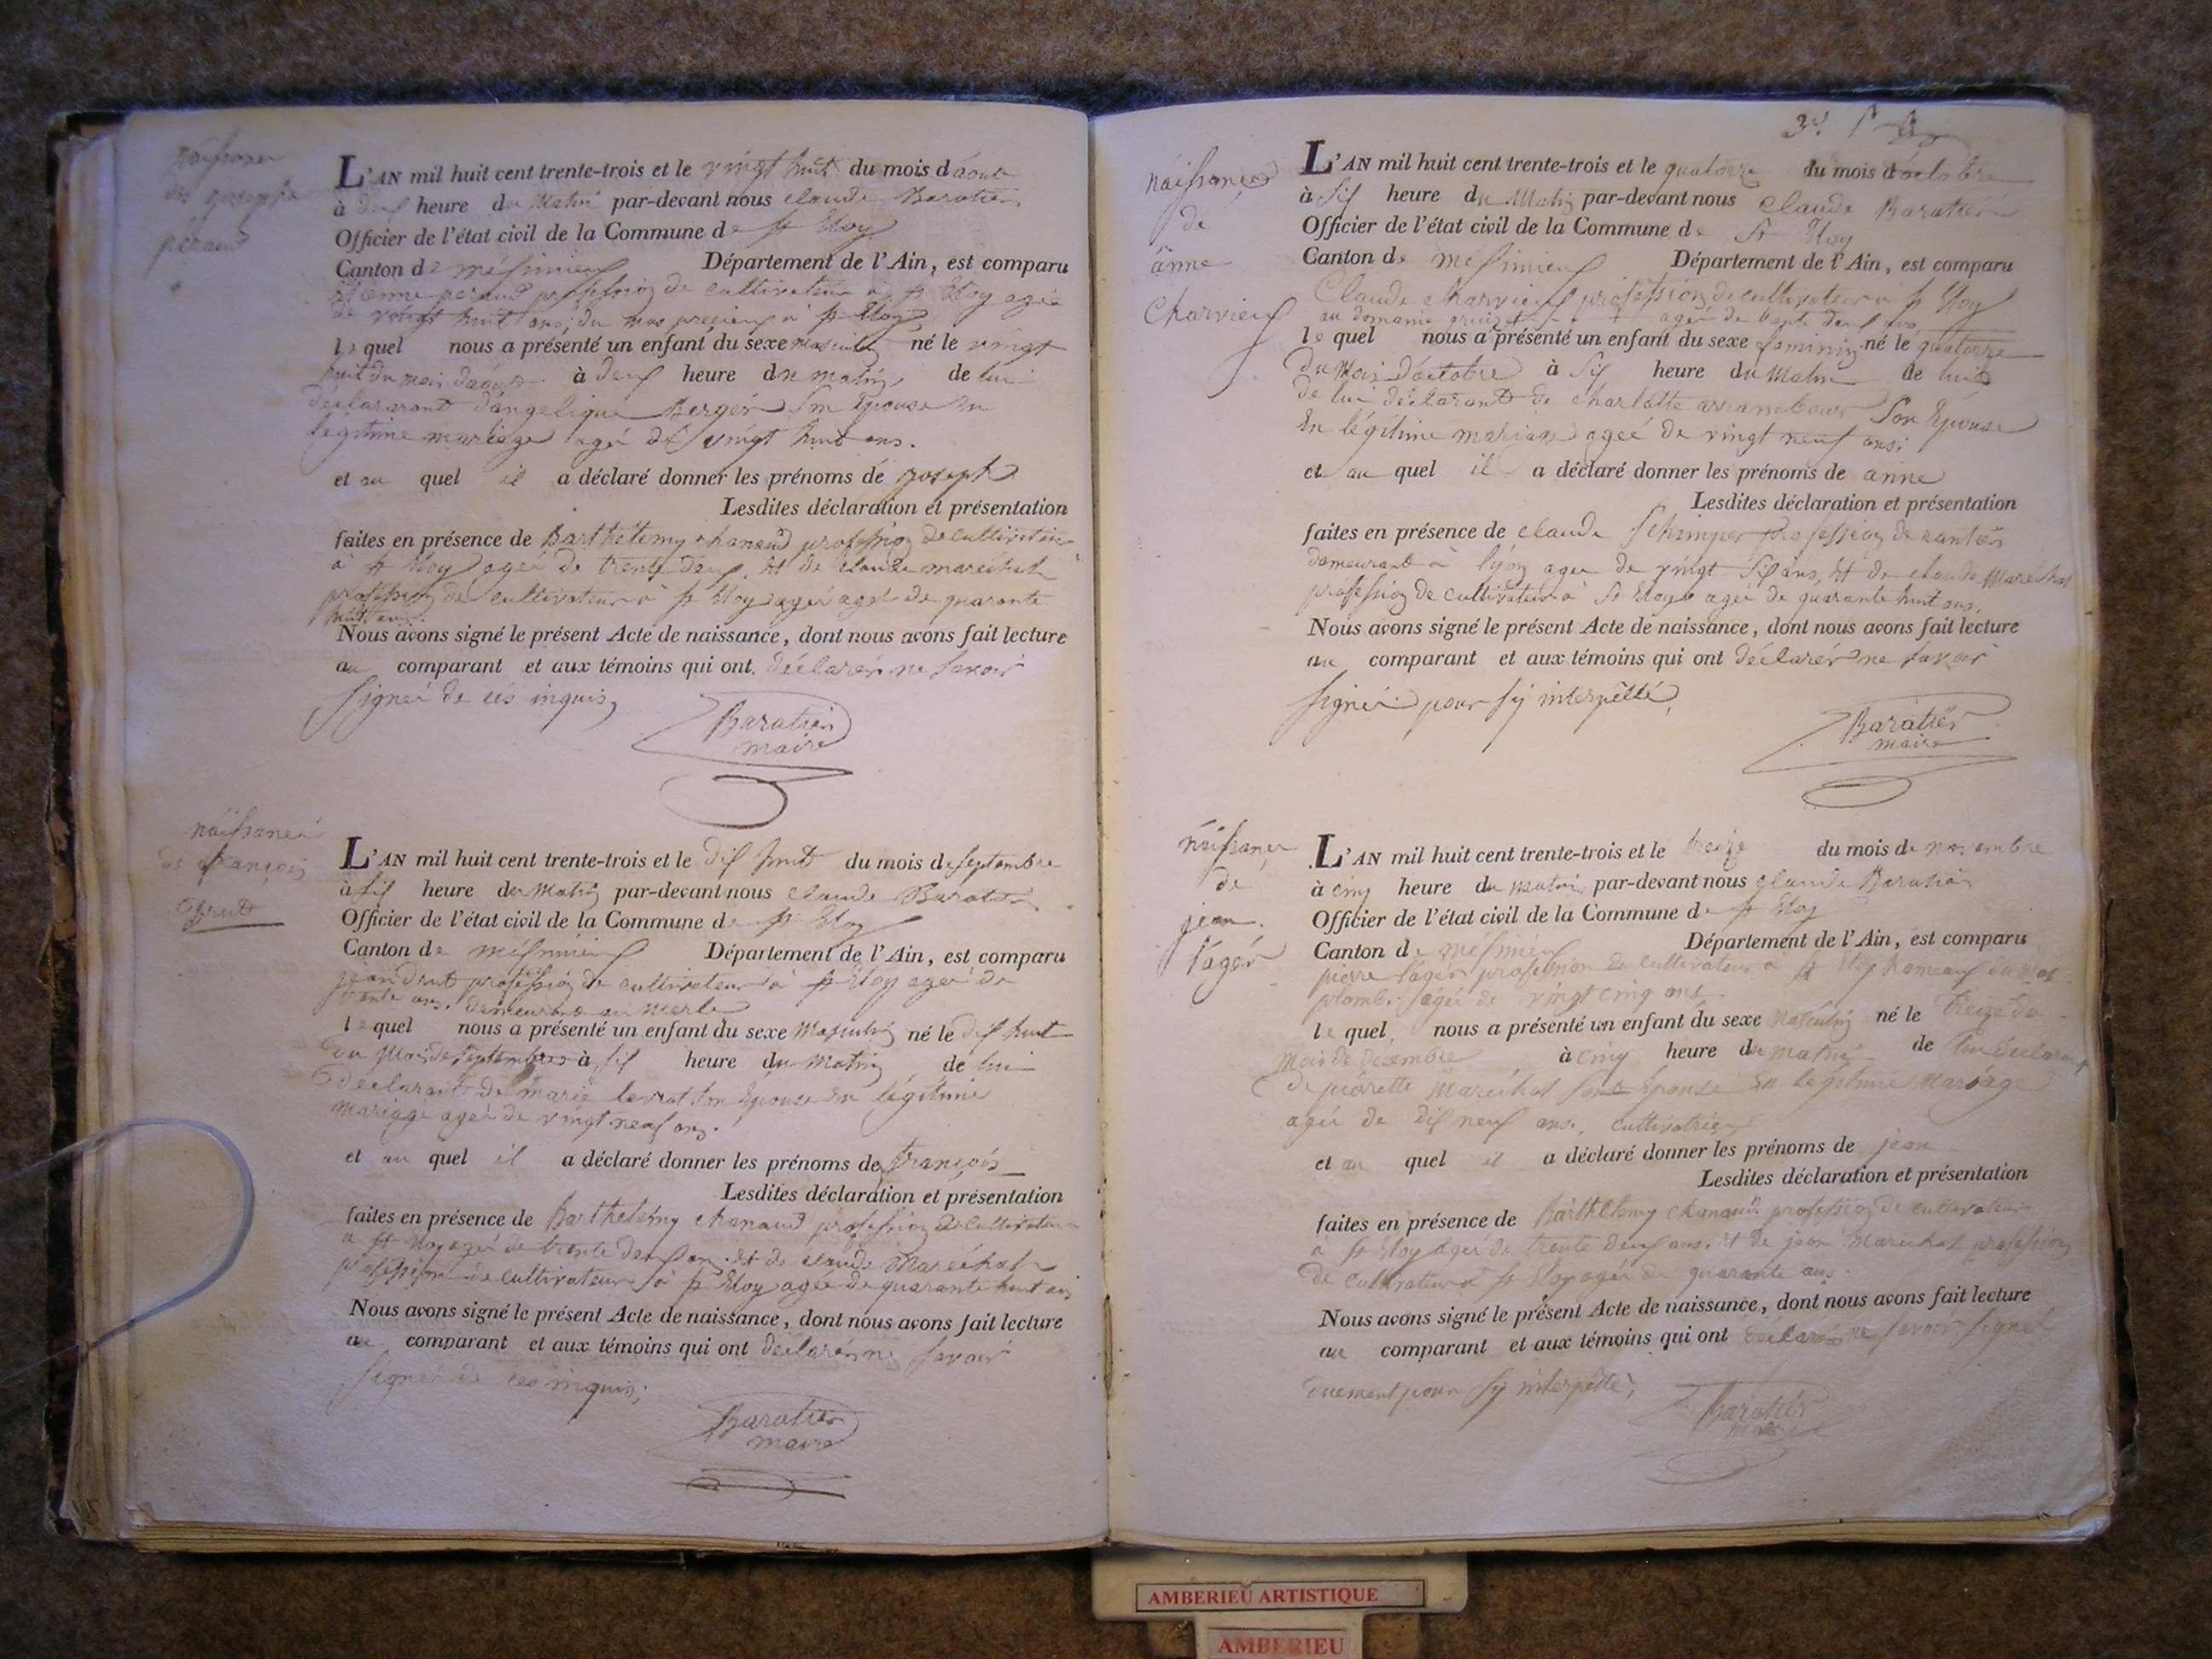 naissance
de
peraud
L'AN mil huit cent trente-trois et le vingt huit du mois d'août
à deux heure du Matin par-devant nous claude Baratier
Officier de l'état civil de la Commune de st Eloy
Canton de mésimieux Département de l'Ain, est comparu
peraud profession de cultivateur à st Eloy agée
de vingt huit ans, du mas à st Eloy
le quel nous a présenté un enfant du sexe masculin né le vingt
huit du mois daout à deux heure du matin de lui
déclarant d'angelique Berger son Epouse en
légitime mariage agée de vingt huit ans.
et au quel il a déclaré donner les prénoms de joseph
Lesdites déclaration et présentation
faites en présence de Barthélemy chanaud profession de cultivateur
à st Eloy agé de trente deux, et de claude maréchal
profession de cultivateur à st Eloy agé agé de quarante
huit ans.
Nous avons signé le présent Acte de naissance, dont nous avons fait lecture
au comparant et aux témoins qui ont déclarér ne savoir
signér de ces inquis,
Baratier
maire
naissance
de françois
L'AN mil huit cent trente-trois et le dix huit du mois de septembre
à six heure du matin par-devant nous claude Baratier
Officier de l'état civil de la Commune de st Eloy
Canton de mésimieux Département de l'Ain, est comparu
jean profession de cultivateur à st Eloy agé de
trente ans. demeurant au merle
le quel nous a présenté un enfant du sexe masculin né le dix huit
du Mois de septembre à six heure du Matin de lui
déclarant de marie levrat son Epouse en légitime
mariage agée de vingt neuf ans.
et au quel il a déclaré donner les prénoms de françois
Lesdites déclaration et présentation
faites en présence de Barthelémy chanaud profession de cultivateur
à st Eloy agé de trente deux ans. et de claude Maréchal
profession de cultivateur à st Eloy agée de quarante huit ans
Nous avons signé le présent Acte de naissance, dont nous avons fait lecture
au comparant et aux témoins qui ont déclarér ne savoir
signér de ces inquis;
Baratier
maire
naissance
de
anne
Charvieux
L'AN mil huit cent trente-trois et le quatorze du mois d'octobre
à six heure du Matin par-devant nous Claude Baratier
Officier de l'état civil de la Commune de St Eloy
Canton de mésimieux Département de l'Ain, est comparu
Claude charvieux profession de cultivateur à st Eloy
au domaine agé de trente deux ans
le quel nous a présenté un enfant du sexe féminin né le quatorze
du Mois d'octobre à six heure du Matin de lui
de lui déclarant de charlotte son Epouse
En légitime mariage ageé de vingt neuf ans;
et au quel il a déclaré donner les prénoms de anne
Lesdites déclaration et présentation
faites en présence de claude profession de rantier
demeurant à lyon agée de vingt six ans, et de claude Maréchal
profession de cultivateur à St Eloy agée de quarante huit ans.
Nous avons signé le présent Acte de naissance, dont nous avons fait lecture
au comparant et aux témoins qui ont déclarér ne savoir
signér pour sy interpéllé,
Baratier
maire
naissance
de
jean
L'AN mil huit cent trente-trois et le treize du mois de novembre
à cinq heure du matin par-devant nous claude Baratier
Officier de l'état civil de la Commune de st Eloy
Canton de mésimieux Département de l'Ain, est comparu
pierre profession de cultivateur à st Eloy hameaux du mas
plomb. agée de vingt cinq ans
le quel nous a présenté un enfant du sexe masculin né le treize du
Mois de décembre à cinq heure du matin de lui déclarant
de pierrette maréchal son Epouse en légitime Mariage
agée de dix neuf ans. cultivatrice
et au quel il a déclaré donner les prénoms de jean
Lesdites déclaration et présentation
faites en présence de Barthélemy chanaud profession de cultivateur
à st Eloy agé de trente deux ans. et de jean Maréchal profession
de cultivateur à st Eloy agée de quarante ans.
Nous avons signé le présent Acte de naissance, dont nous avons fait lecture
au comparant et aux témoins qui ont déclarér ne savoir signer
duement pour sy interpéllé,
Baratier
maire
AMBERIEU ARTISTIQUE
AMBERIEU